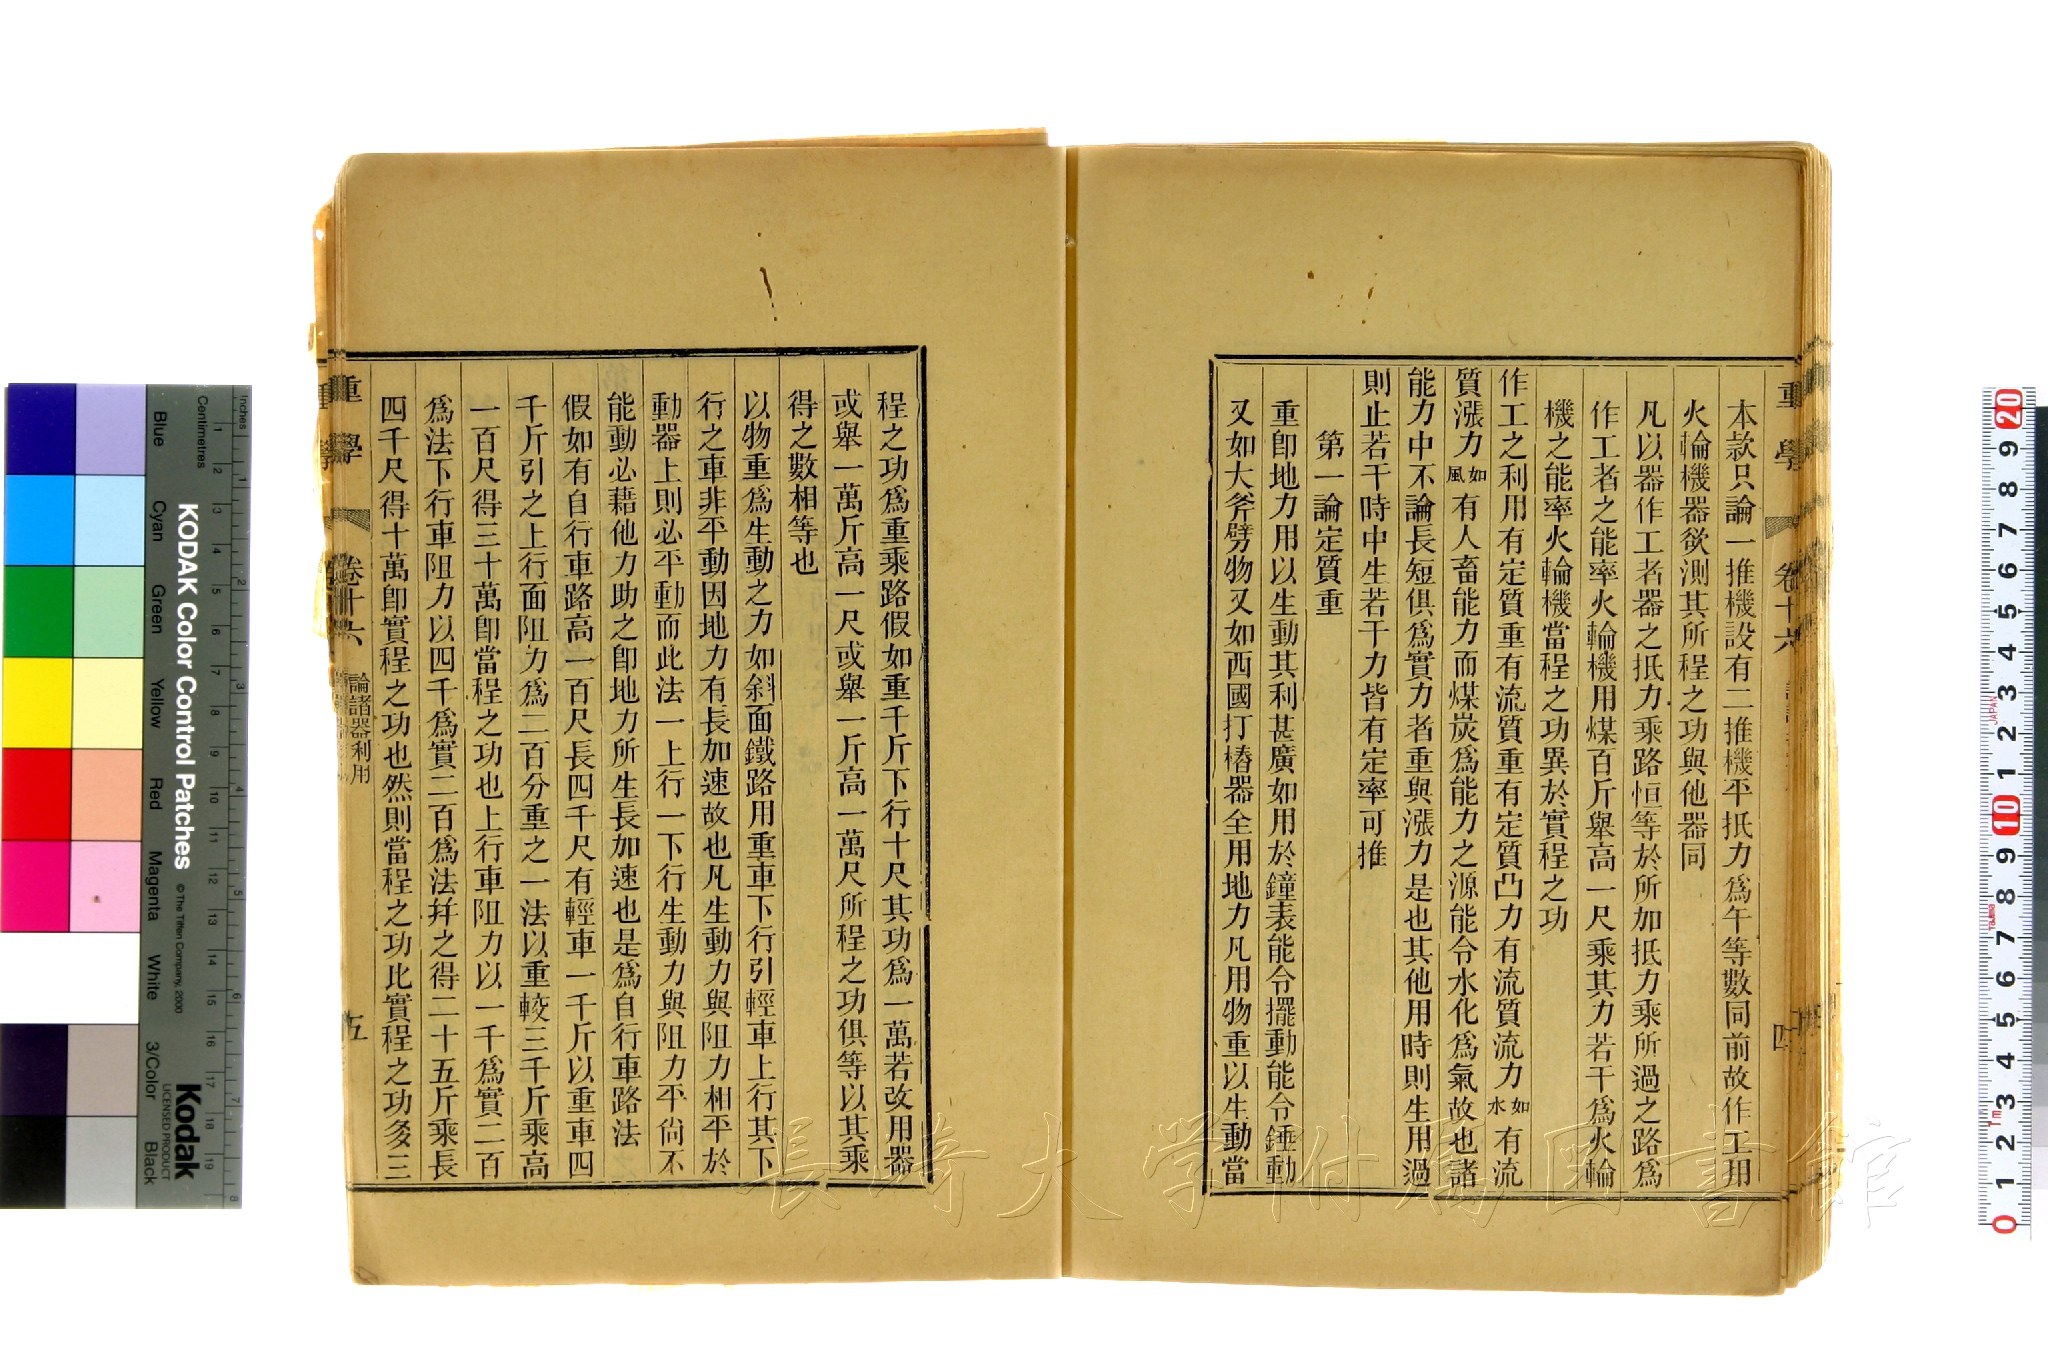 本款只論一推機設有二推機平抵力爲午等數同前故作工用
火輪機器欲測其所程之功與他器同
凡以器作工者器之抵力乘路恒等於所加抵力乘所過之路爲
作工者之能率火輪機用煤百斤舉高一尺乘其力若干爲火輪
機之能率火輪機當程之功異於實程之功
作工之利用有定質重有流質重有定質凸力有流質流力如水有流
質漲力如風有人畜能力而煤炭爲能力之源能令水化爲氣故也諸
能力中不論長短俱爲實力者重與漲力是也其他用時則生用過
則止若干時中生若干力皆有定率可推
第一論定質重
重卽地力用以生動其利甚廣如用於鐘表能令擺動能令錘動
又如大斧劈物又如西國打樁器全用地力凡用物重以生動當
重學
卷十六
四
程之功爲重乘路假如重千斤下行十尺其功爲一萬若改用器
或舉一萬斤高一尺或舉一斤高一萬尺所程之功俱等以其乘
得之數相等也
以物重爲生動之力如斜面鐵路用重車下行引輕車上行其下
行之車非平動因地力有長加速故也凡生動力與阻力相平於
動器上則必平動而此法一上行一下行生動力與阻力平尙不
能動必藉他力助之卽地力所生長加速也是爲自行車路法
假如有自行車路高一百尺長四千尺有輕車一千斤以重車四
千斤引之上行面阻力爲二百分重之一法以重較三千斤乘高
一百尺得三十萬卽當程之功也上行車阻力以一千爲實二百
爲法下行車阻力以四千爲實二百爲法幷之得二十五斤乘長
四千尺得十萬卽實程之功也然則當程之功比實程之功多三
重學
卷十六
論諸器利用
五
KODAK Color Control Patches
©The Tiffen Company, 2000
Kodak
LICENSED PRODUCT
Inches
Centimetres
Blue
Cyan
Green
Yellow
Red
Magenta
White
3/Color
Black
長崎大学附属図書館
JAPAN